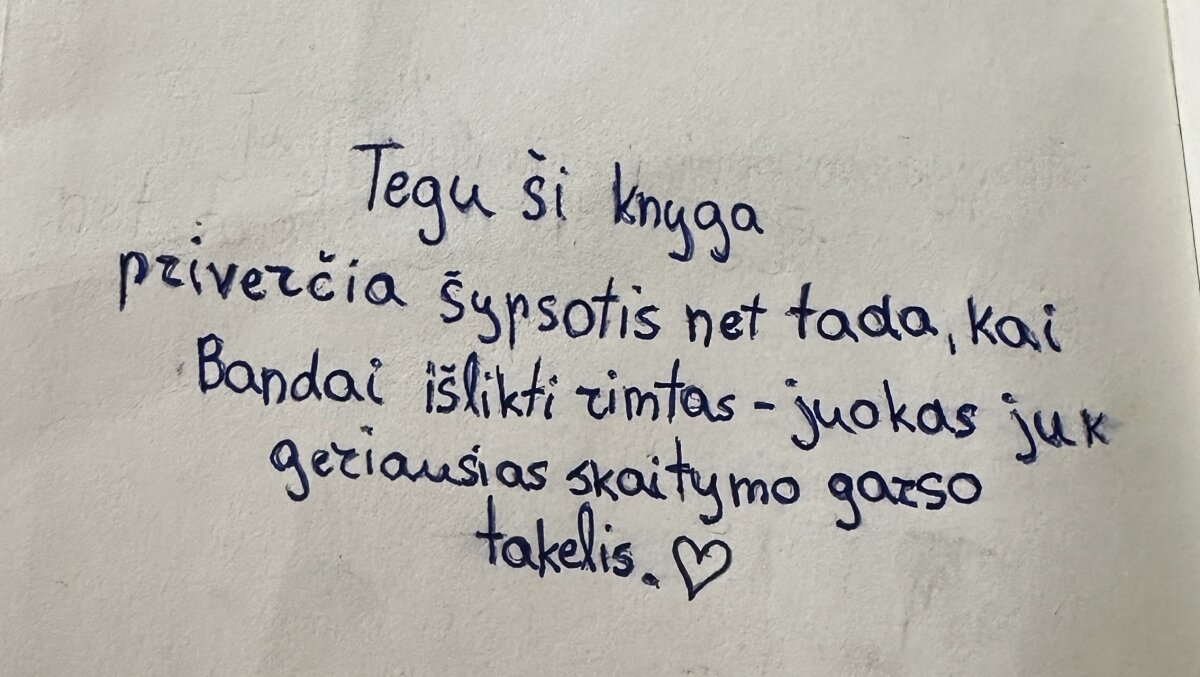 Tegu ši knyga
priverčia šypsotis net tada, kai
Bandai išlikti rimtas - juokas juk
geriausias skaitymo garso
takelis. ♡